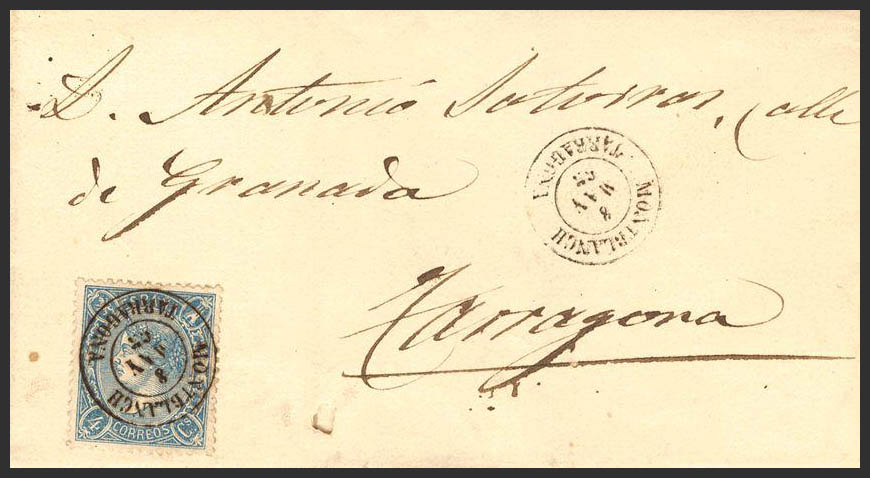 D. Antonio Satorras, Calle
de Granada
Tarragona
MONTBLANCH
TARRAGONA
8
MONTBLANCH
TARRAGONA
8
4 Cs
CORREOS